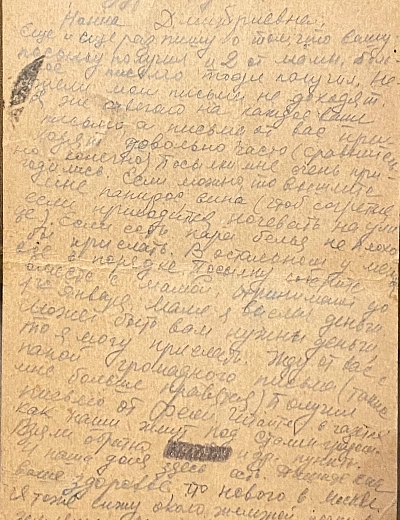 Нонна Дмитриевна.
Еще и еще раз пишу о том, что вашу
посылку получил и 2 от мамы, боль-
шое письмо тоже получил, не-
ужели мои письма не доходят
я же отвечаю на каждое ваше
письмо, а письма от вас при-
ходят довольно часто (сравнитель-
но конечно) посылки мне очень при-
годились. Если можно, то вышлите
мне папирос вина (чтоб согреться
если приходится ночевать на ули-
це) Если есть пара белья не плохо
бы прислать. В остальном у меня
все в порядке посылку
вместе с мамой, принимают до
1го января, маме я выслал деньги
может быть вам нужны деньги,
то я могу прислать. Жду от вас с
папой громадного письма (такие
мне больше нравятся) Получил
письмо от читайте в газетах
как наши жмут под Сталинградом
Взяли обратно и др. пункты.
и наша доля здесь есть
ваше здоровье, что нового в Москве
я тоже сижу около железной